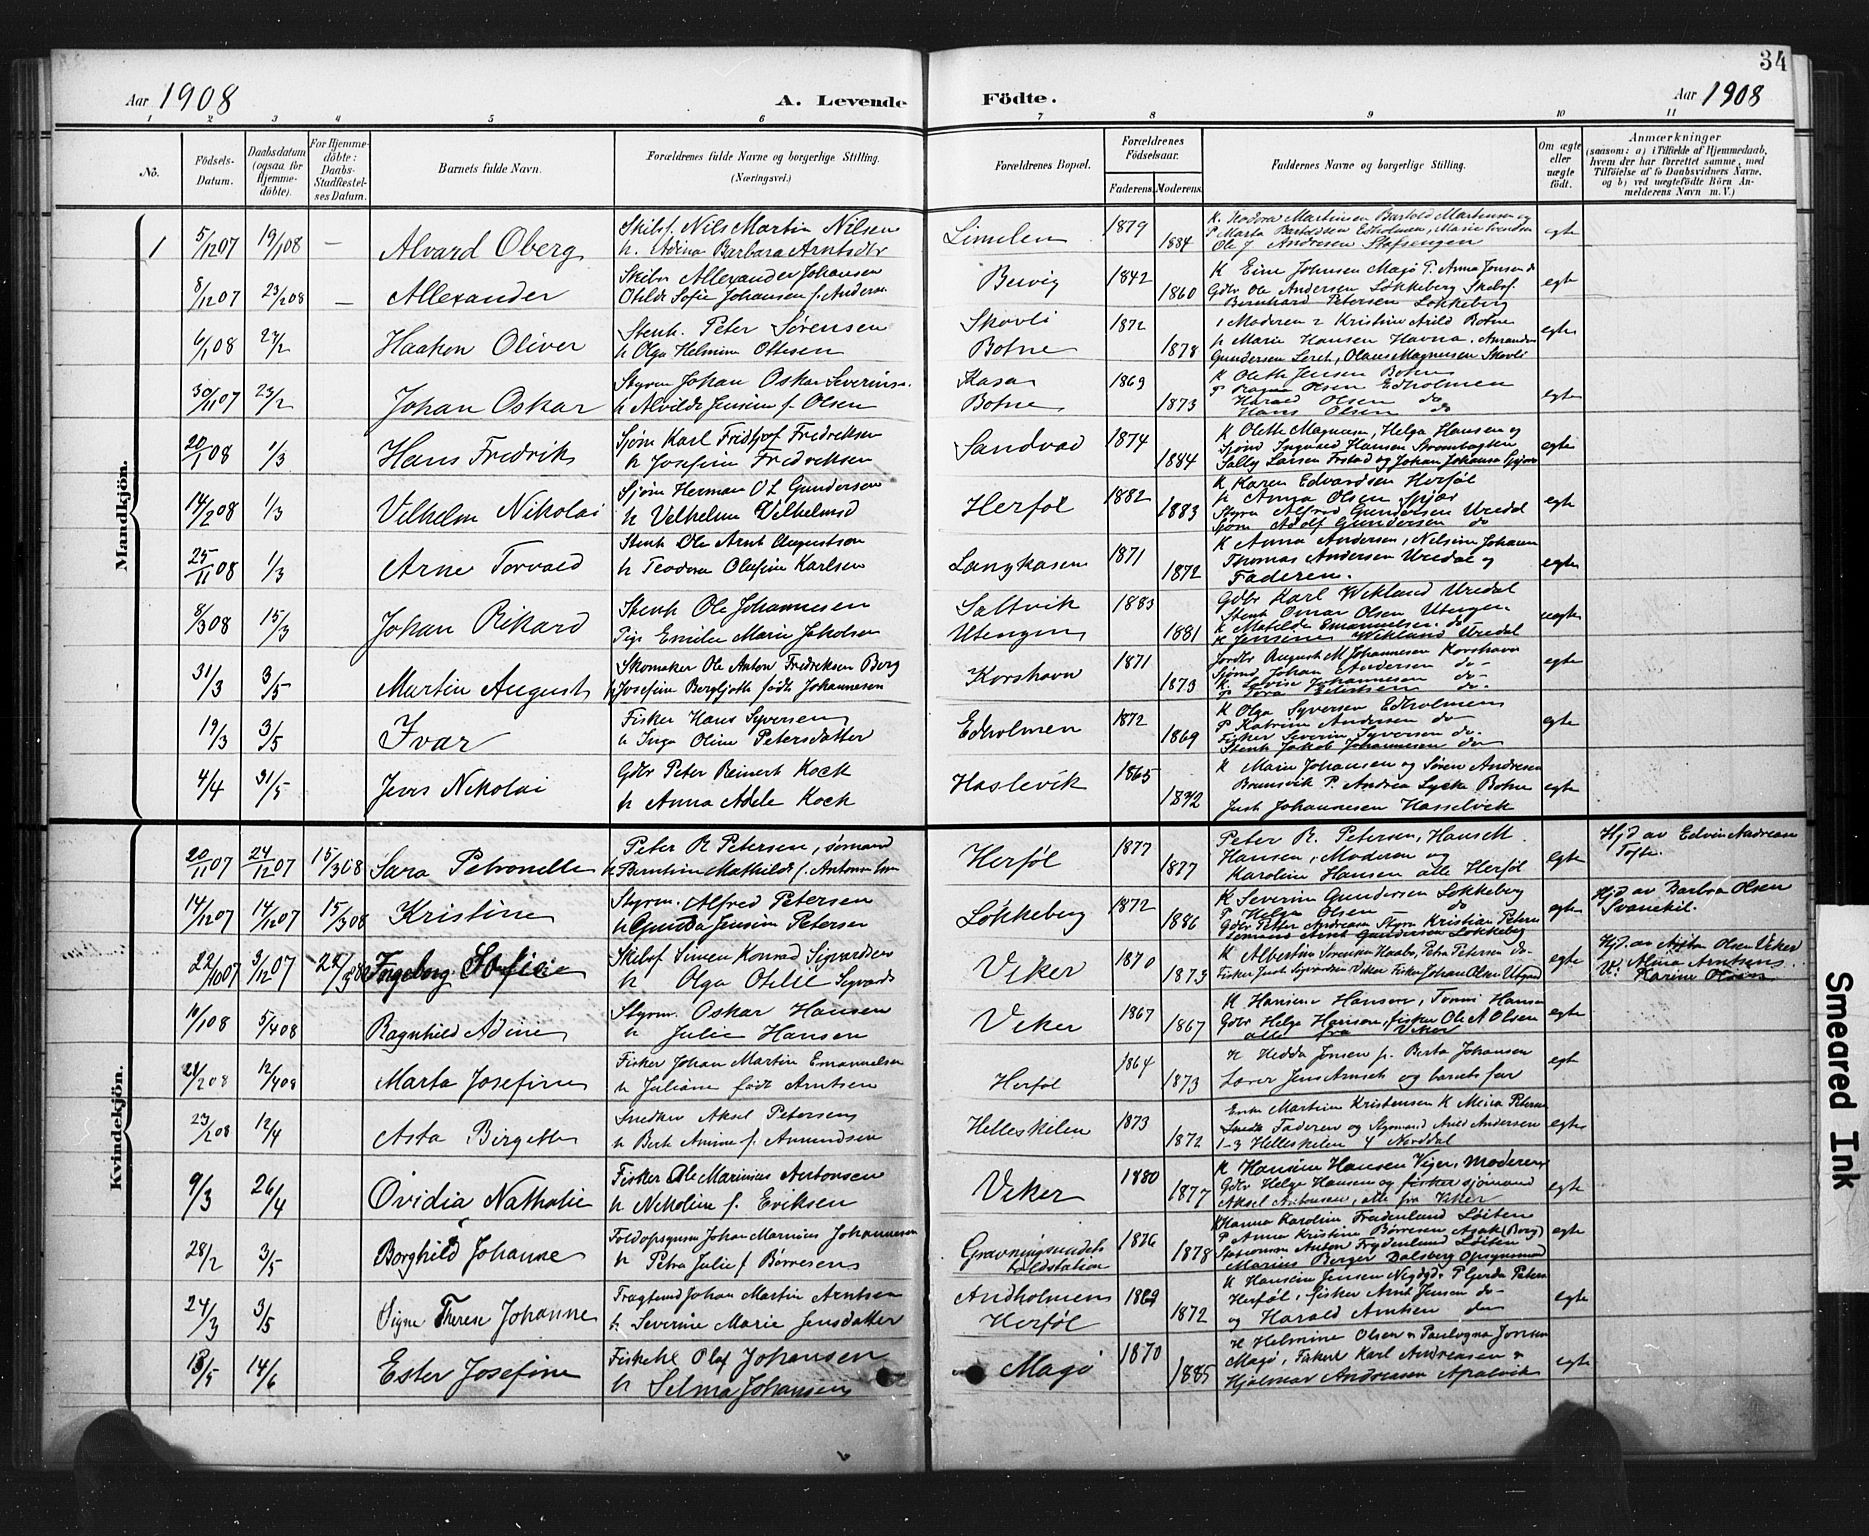 34
Aar 1908 A. Levende Födte. Aar 1908
1 2 3 4 5 6 7 8 9 10 11
No. Födsels-Datum. Daabsdatum (ogsaa for Hjemme-döbte). For Hjemme-döbte: Daabs-Stadfæstel-ses Datum. Barnets fulde Navn. Forældrenes fulde Navne og borgerlige Stilling. (Næringsvei.) Forældrenes Bopæl. Forældrenes Födselsaar. Faderens. Moderens. Faddernes Navne og borgerlige Stilling. Om ægte eller uægte födt. Anmærkninger (saasom: a) i Tilfælde af Hjemmedaab, hvem der har forrettet samme, med Tilföielse af to Daabsvidners Navne, og b) ved uægtefödte Börn An-melderens Navn m. V.)
Mandkjön.
1 5/12 07 19/1 08 – Alvard Oberg Skibsf. Nils Martin Nilsen
h. Adina Barbara Arntsdtr Limelen 1879 1884 egte
8/12 07 23/2 08 – Allexander Skibsr Allexander Johansen
Otilde Sofie Johansen f. Anderse Bevig 1842 1860 K Eine Johnsen Magö P. Anna Jonsen do
Gdbr Ole Andersen Løkkeberg Skibsf.
Bernhard Petersen Løkkeberg egte
6/1 08 23/2 Haakon Oliver Stenh. Peter Sørensen
h Olga Helmine Ottesen Skovli
Botne 1872 1878 1 Moderen 2 Kristine Arild Botne
h Marie Hansen Havna, Amandus
Gundersen Leret, Olaus Magnussen Skovli egte
30/11 07 23/2 Johan Oskar Styrm Johan Oskar Severins.
h Alvilde Jensine f. Olsen Kasa
Botne 1869 1873 K Oleth Jensen Botne
P Ragna Olsen Edholmen
Harald Olsen do
Hans Olsen do egte
20/1 08 1/3 Hans Fredrik Sjøm Karl Fridtjof Fredriksen
h Josefine Fredriksen Sandvad 1874 1884 K Oleth Magnusen, Helga Hansen og
Sjømd Ingvald Hansen Strømbagten
Sally Larsen og Johan Johansen egte
14/2 08 1/3 Vilhelm Nikolai Sjøm Herman O L Gundersen
h Vilhelmine Vilhelmsd Herføl 1882 1883 K Karen Edvardsen Herføl
h Anna Olsen Spjær
Styrm Alfred Gundersen Uredal
Sjøm Adolf Gundersen do egte
25/11 08 1/3 Arne Torvald Stenh Ole Arnt Augustson
h Teodora Olufine Karlsen Langkasen 1871 1872 K Anna Andersen, Nelsine Johansen
Thomas Andersen Uredal og
Faderen. egte
8/3 08 15/3 Johan Rikard Stenh Ole Johannesen
Pige Emilie Marie Jakobsen Saltvik
Utengen 1883 1881 Gdbr Karl Wikland Uredal
Stenh Omar Olsen Utengen
K Matilde Emanuelsen do
K Jensine Wikland Uredal uegte
31/3 3/5 Martin August Skomaker Ole Anton Fredriksen Berg
h Josefine Bergljoth født Johannesen Korshavn 1871 1873 Jordbr August M Johannesen Korshavn
Sjømd Johan Andersen do-
K. Lovise Johannesen do-
P Tora Edvardsen do- egte
19/3 3/5 Ivar Fisker Hans Syversen
h Inga Oline Petersdatter Edholmen 1872 1869 K Olga Syversen Edholmen
P Katrine Andersen do
Fisker Severin Syversen do.
Stenh Jakob Johannesen do egte
4/4 31/5 Jens Nikolai Gdbr Peter Reinert Kock
h Anna Adele Kock Haslevik 1865 1872 K Marie Johansen og Søren Andresen
Brunsvik P. Andrea Lycke Botne
Just Johannesen Hasselvik egte
Kvindekjön.
20/11 07 24/12 07 15/3 08 Sara Petronelle Peter R Petersen, sømand
h Berntine Mathilde f. Antonsen Herføl 1877 1877 Peter R. Petersen, Hans M.
Hansen, Moderen og
Karoline Hansen alle Herføl egte Hjd av Edvin Andreas
Tofte.
14/12 07 14/12 07 15/3 08 Kristine Styrm. Alfred Petersen
h Gunda Jensine Petersen Løkkeberg 1872 1886 K Severine Gundersen Løkkeberg
P Helga Olsen do
Gdbr Petter Andreasen Styrm Kristian Petersen
Sømand Arnt Gundersen Løkkeberg egte Hjd av Barbra Olsen
Svanekil.
22/10 07 3/12 07 22/3 08 Ingeborg Sofilie Skibsf Simen Konrad Sigvardsen
h Olga Otilie Sigvards Viker 1870 1873 K Albertine Sørensen Haabo, Petra Petersen do-
Fisker Just Sigvardsen Viker Fisker Johan Olsen Utgaard egte Hjd av Olsen Viker
V: Alma Arntsens.
Karine Olsen
10/1 08 5/4 08 Ragnhild Adine Styrm. Oskar Hansen
h Julie Hansen Viker 1867 1867 K Hansine Hansen, Tomine Hansen
Gdbr Helge Hansen, fisker Ole A Olsen
alle fra Viker egte
21/2 08 12/4 08 Marta Josefine Fisker Johan Martin Emanuelsen
h Juliane født Arntsen Herføl 1864 1873 K Hedda Jensen p. Berta Johansen
Lærer Jens Arntsch og barnets far egte
23/2 08 12/4 Asta Birgette Snedker Aksel Petersen
h Bert Amine f. Amundsen Helleskilen 1873 1872 Enke Martine Kristensen K Meina Petersen
Snedk Faderen og Styrmand Arild Andersen
1-3 Helleskilen 4 Norddal egte
9/3 26/4 Ovidia Nathalie Fisker Ole Marinius Antonsen
h Nikoline f. Eriksen Viker 1880 1877 K Hansine Hansen Viger, Moderen
Gdbr Helge Hansen og fisker sjømand
Aksel Antonsen, alle fra Viker egte
28/2 3/5 Borghild Johanne Toldopsynsm Johan Marinius Johannesen
h Petra Julie f Børresen Gravningsundets
toldstation 1876 1878 K Hanna Karoline Frydenlund Løiten
P Anna Kristine Børresen Agak (Borg)
Stasionsm Anton Frydenlund Løiten
Marius Berger Dalsberg Opsynsmand egte
24/3 3/5 Signe Therese Johanne Fragtmd Johan Martin Arntsen
h Severine Marie Jensdatter Andholmen
Herføl 1869 1872 K Hansine Jensen P Gerda Petersen
Herføl, Fisker Arnt Jensen do-
og Harald Arntsen do egte
18/5 14/6 Ester Josefine Fiskehl Olaf Johansen
h Selma Johansen Magö 1870 1885 K Helmine Olsen Paulogna Jonsen
Magö, Fiskerl Karl Andreasen
Hjalmar Andreasen Apalvik egte
Smeared Ink